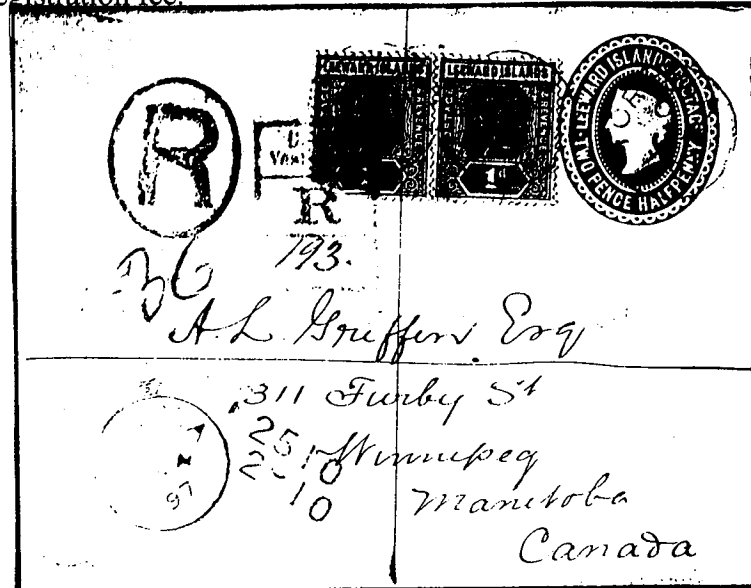 gistration fee.
LEEWARD ISLANDS LEEWARD ISLANDS
LEEWARD ISLANDS POSTAGE
TWO PENCE HALFPENNY
1d
R
R
193.
36
A. L Griffin Esq
311 Furby St
Winnipeg
Manitoba
Canada
A
97
25 10
10